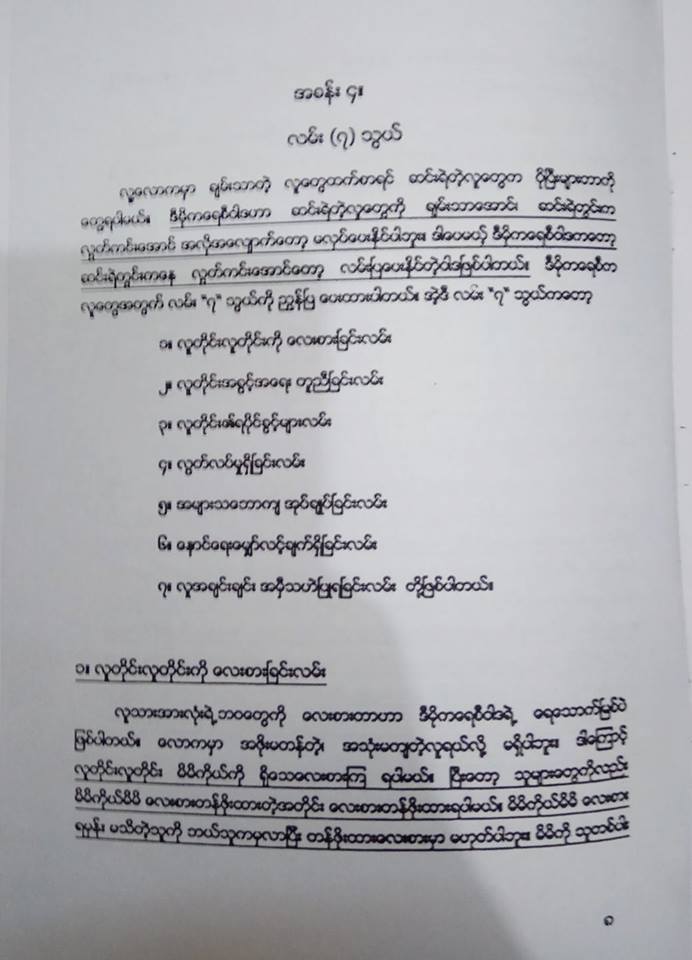 အခန်း ၄။
လမ်း (၇) သွယ်
လူ့လောကမှာ ချမ်းသာတဲ့ လူတွေထက်စာရင် ဆင်းရဲတဲ့လူတွေက ပိုပြီးများတာကို
တွေ့ရပါမယ်။ ဒီမိုကရေစီဝါဒဟာ ဆင်းရဲတဲ့လူတွေကို ချမ်းသာအောင်၊ ဆင်းရဲတွင်းက
လွတ်ကင်းအောင် အလိုအလျောက်တော့ မလုပ်ပေးနိုင်ပါဘူး။ ဒါပေမယ့် ဒီမိုကရေစီဝါဒကတော့
ဆင်းရဲတွင်းကနေ လွတ်ကင်းအောင်တော့ လမ်းပြပေးနိုင်တဲ့ဝါဒဖြစ်ပါတယ်။ ဒီမိုကရေစီက
လူတွေအတွက် လမ်း "၇" သွယ်ကို ညွှန်ပြ ပေးထားပါတယ်။ အဲ့ဒီ လမ်း "၇" သွယ်ကတော့
၁။ လူတိုင်းလူတိုင်းကို လေးစားခြင်းလမ်း
၂။ လူတိုင်းအခွင့်အရေး တူညီခြင်းလမ်း
၃။ လူတိုင်း၏ရပိုင်ခွင့်များလမ်း
၄။ လွတ်လပ်မှုရှိခြင်းလမ်း
၅။ အများသဘောကျ အုပ်ချုပ်ခြင်းလမ်း
၆။ နောင်ရေးမျှော်လင့်ချက်ရှိခြင်းလမ်း
၇။ လူအချင်းချင်း အမှီသဟဲပြုရခြင်းလမ်း တို့ဖြစ်ပါတယ်။
၁။ လူတိုင်းလူတိုင်းကို လေးစားခြင်းလမ်း
လူသားအားလုံးရဲ့ဘဝတွေကို လေးစားတာဟာ ဒီမိုကရေစီဝါဒရဲ့ ရေသောက်မြစ်ပဲ
ဖြစ်ပါတယ်။ လောကမှာ အဖိုးမတန်တဲ့၊ အသုံးမကျတဲ့လူရယ်လို့ မရှိပါဘူး။ ဒါကြောင့်
လူတိုင်းလူတိုင်း မိမိကိုယ်ကို ရိုသေလေးစားကြ ရပါမယ်။ ပြီးတော့ သူများတွေကိုလည်း
မိမိကိုယ်မိမိ လေးစားတန်ဖိုးထားတဲ့အတိုင်း လေးစားတန်ဖိုးထားရပါမယ်။ မိမိကိုယ်မိမိ လေးစား
ရမှန်း မသိတဲ့သူကို ဘယ်သူကမှလာပြီး တန်ဖိုးထားလေးစားမှာ မဟုတ်ပါဘူး။ မိမိကို သူတစ်ပါး
၈